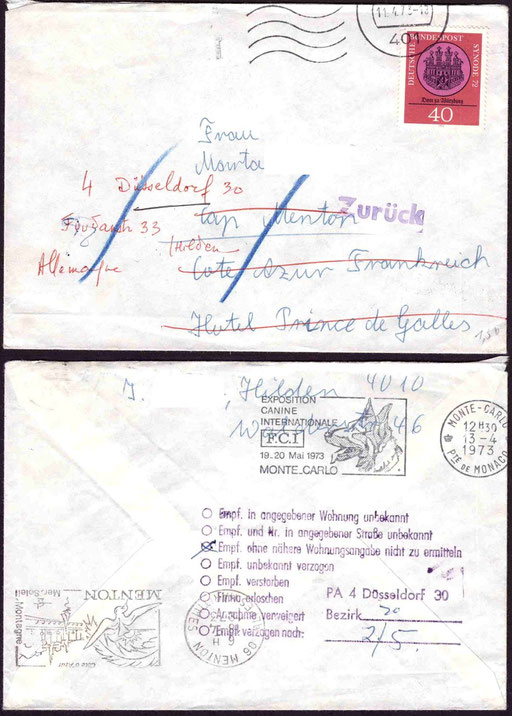 11.4.73-18
401
DEUTSCHE BUNDESPOST
SYNODE 72
Dom zu Würzburg
40
Frau
Marta
4 Düsseldorf 30
Zurück
Cap Menton
33
(Hilden
Allemagne
Cote Azur Frankreich
Hotel Prince de Galles
1,50
J. Hilden 4010
46
EXPOSITION
CANINE
INTERNATIONALE
F.C.I
19_20 Mai 1973
MONTE_CARLO
MONTE-CARLO
12H30
13-4
1973
PTÉ DE MONACO
Empf. in angegebener Wohnung unbekannt
Empf. und Nr. in angegebener Straße unbekannt
Empf. ohne nähere Wohnungsangabe nicht zu ermitteln
Empf. unbekannt verzogen
Empf. verstorben
Firma erloschen
Annahme verweigert
Empf. verzogen nach:
PA 4 Düsseldorf 30
Bezirk 20
2/5.
MENTON
Côte d'Azur
Mer-Soleil
Montagne
06 MENTON